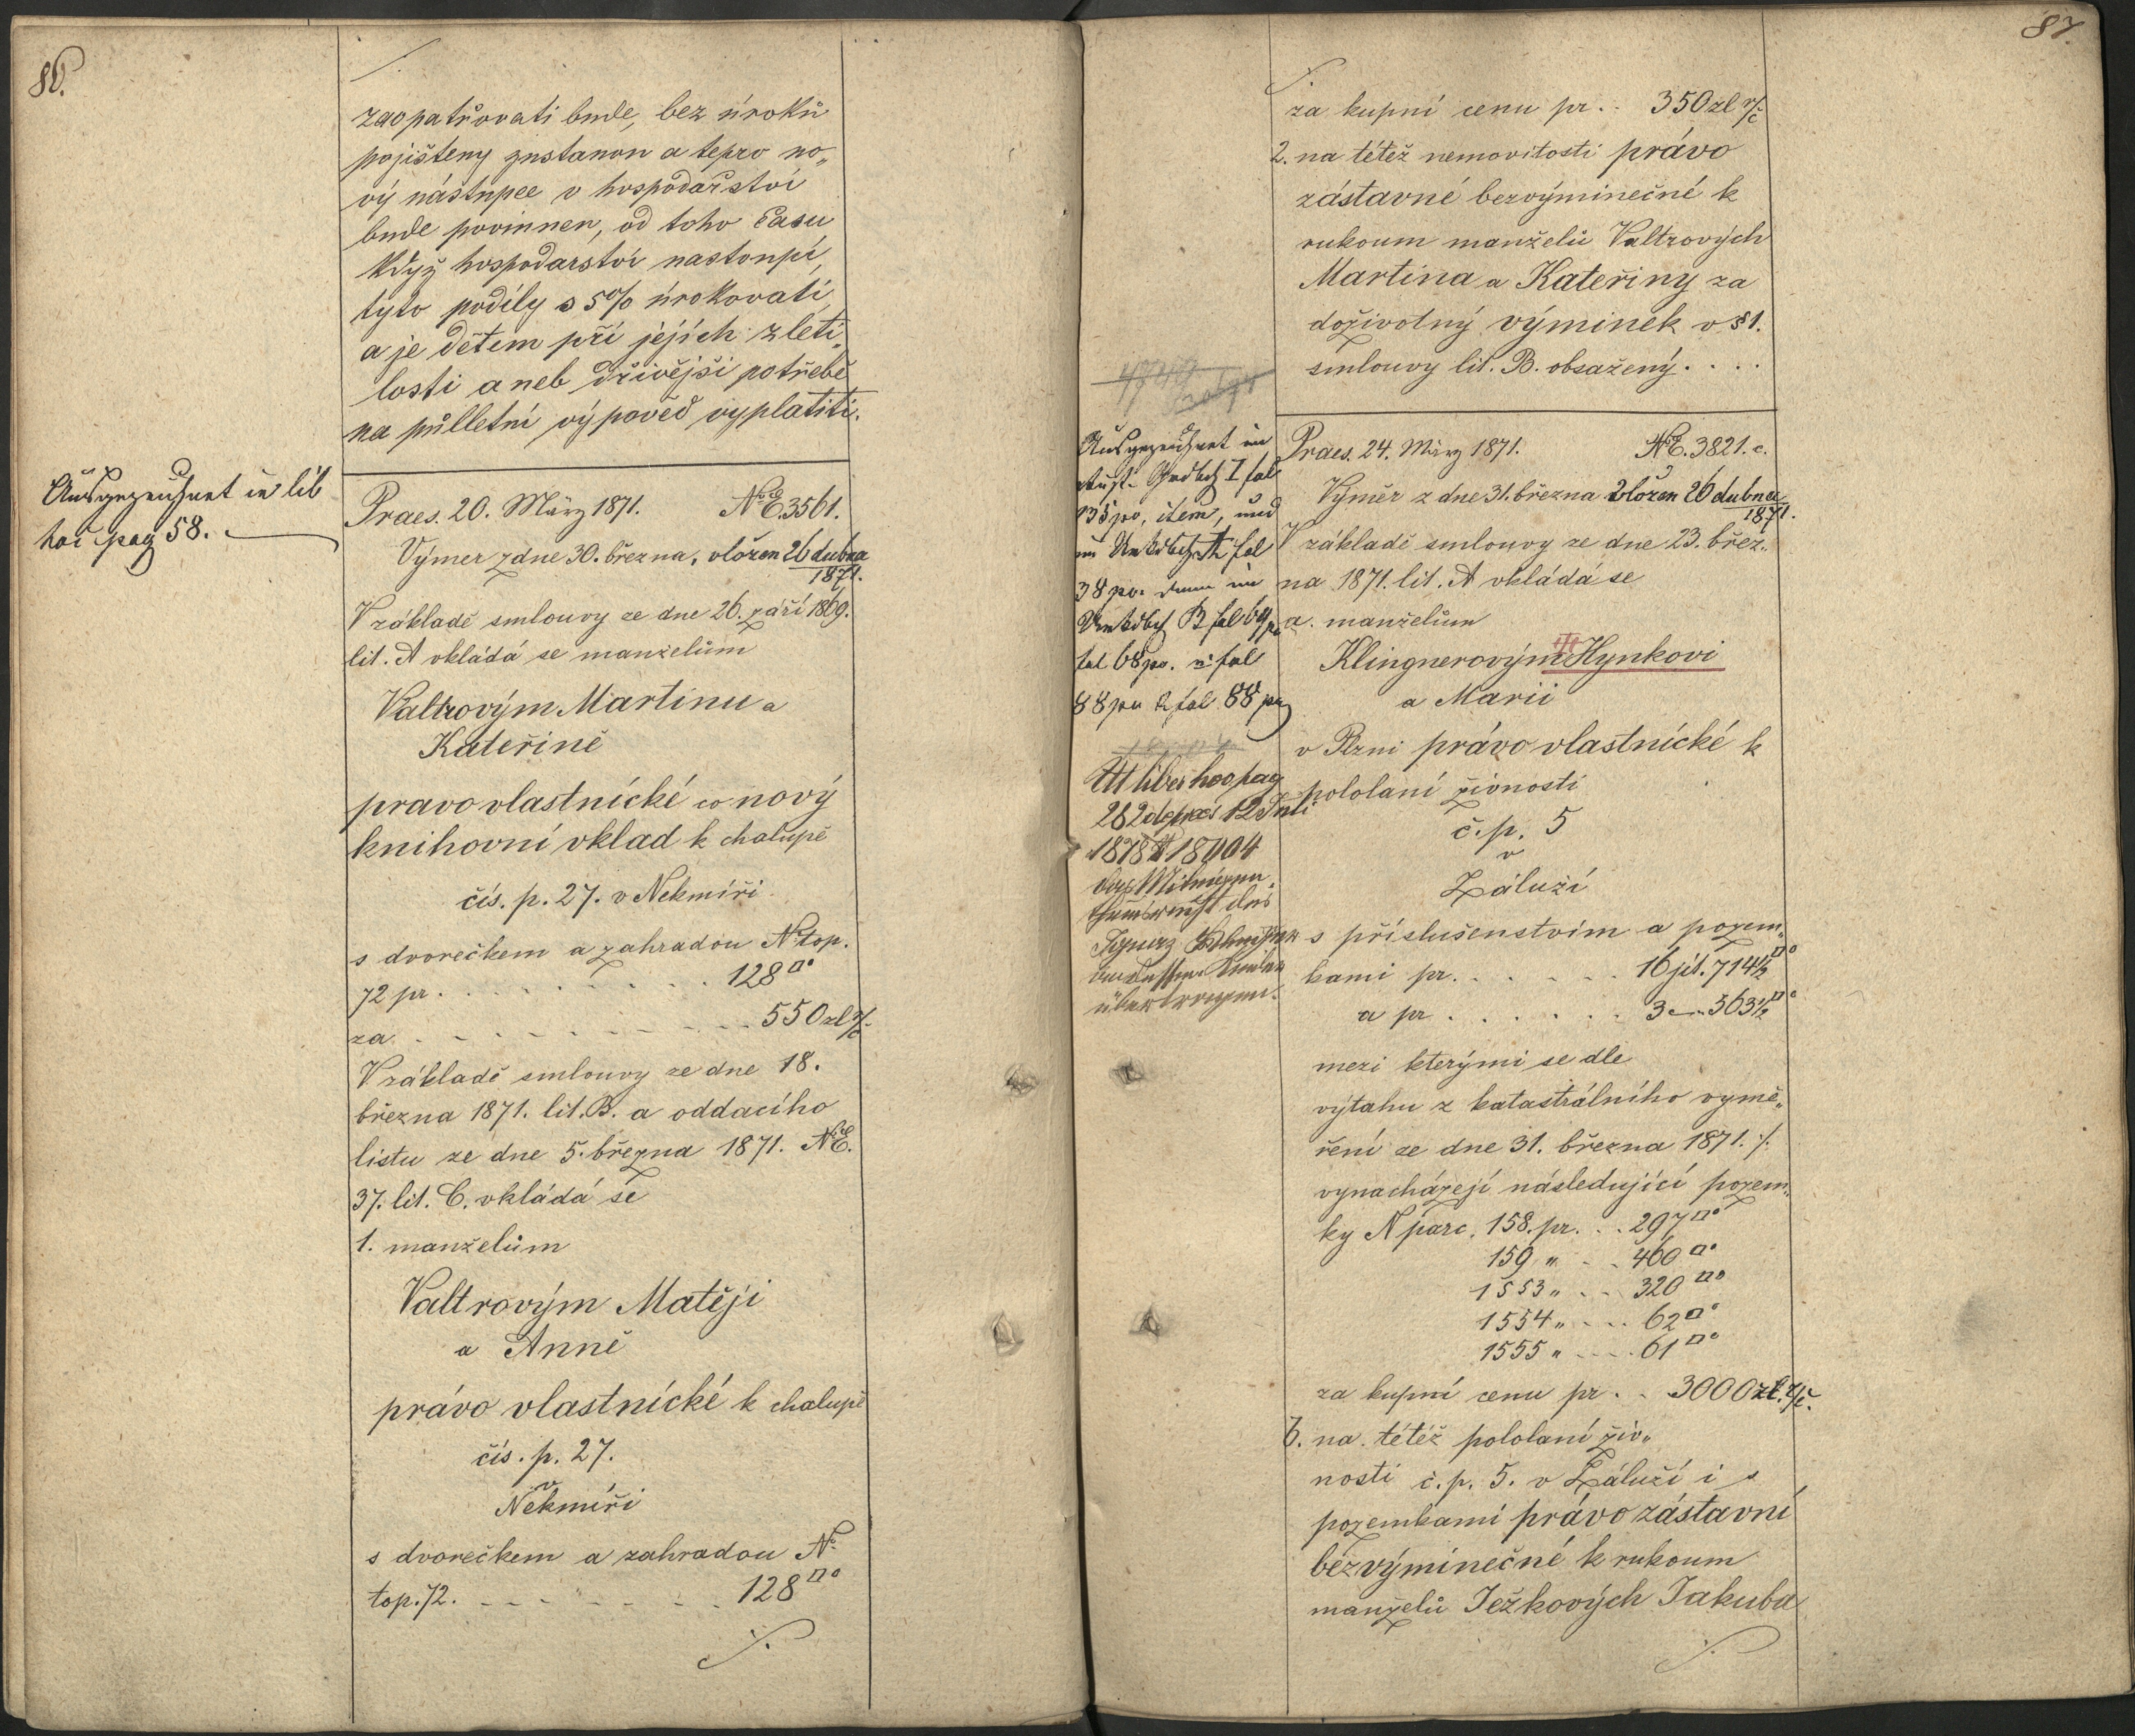 86.
zaopatřovati bude, bez úroků
pojištěny zustanou a tepro no„
vý nástupce v hospodařství
bude povinnen, od toho času
když hospodarství nastoupí,
tyto podíly s 5% úrokovati
a je dětem při jejích zleti„
losti aneb dřívějši potřebě
na půlletní výpověd vyplatiti.
Ausgezeichnet in lib
hoc pag 58.
Praes. 20. März 1871. NE. 3561.
Výmer z dne 30. března, vložen 26 dubna
1871.
V základě smlouvy ze dne 26. září 1869.
lit. A vkládá se manželům
Valtrovým Martinu a
Kateřině
pravo vlastnícké co nový
knihovní vklad k chalupě
čís. p. 27. v Nekmíři
s dvorečkem a zahradou N top.
72 pr. . . . . . . . . . 128□°
za . . . . . . . . . 550 zl r/č
V základě smlouvy ze dne 18.
března 1871. lit. B. a oddacího
listu ze dne 5. března 1871. NE.
37. lit. C. vkládá se
1. manželům
Valtrovým Matěji
a Anně
právo vlastnícké k chalupě
čís. p. 27.
v
Nekmíři
s dvorečkem a zahradou N
top. 72. . . . . . . . 128□°
./.
87.
./.
za kupní cenu pr. . 350 zl r/č
2. na tétež nemovitosti právo
zástavné bezvýminečné k
rukoum manželů Valtrových
Martina a Kateřiny za
doživotný výminek v § 1.
smlouvy lit. B. obsažený. . . .
Ausgezeichnet im
fol
135 po, item, und
im fol
38 po. dann im
B fol 69 po
fol 68 po. fol
88 po & fol 88 po
Praes. 24. März 1871. NE. 3821. c.
Výměr z dne 31. března vložen 26 dubna
1871.
V základě smlouvy ze dne 23. břez„
na 1871. lit. A vkládá se
a. manželům
Klingnerovým Hynkovi
a Marii
v Plzni právo vlastnícké k
pololaní živnosti
č. p. 5
v
Záluží
s příslušenstvím a pozem„
kami pr. . . . . . 16 jit. 714½□°
a pr . . . . . . 3 „ 563½□°
liber hoc pag
282 de praes 12 Juli
1878 18904
übertragen.
mezi kterými se dle
výtahu z katastrálního vymě„
ření ze dne 31. března 1871. ./.
vynacházejí následující pozem„
ky N parc. 158. pr. . . 297□°
159 „ . . 460□°
1553 „ . . 320□°
1554 „ . . . 62□°
1555 „ . . . 61□°
za kupní cenu pr . . 3000 zl. r/č.
b. na tétéž pololaní živ„
nosti č. p. 5. v Záluží i s
pozemkami právo zástavní
bezvýminečné k rukoum
manželů Ježkových Jakuba
./.